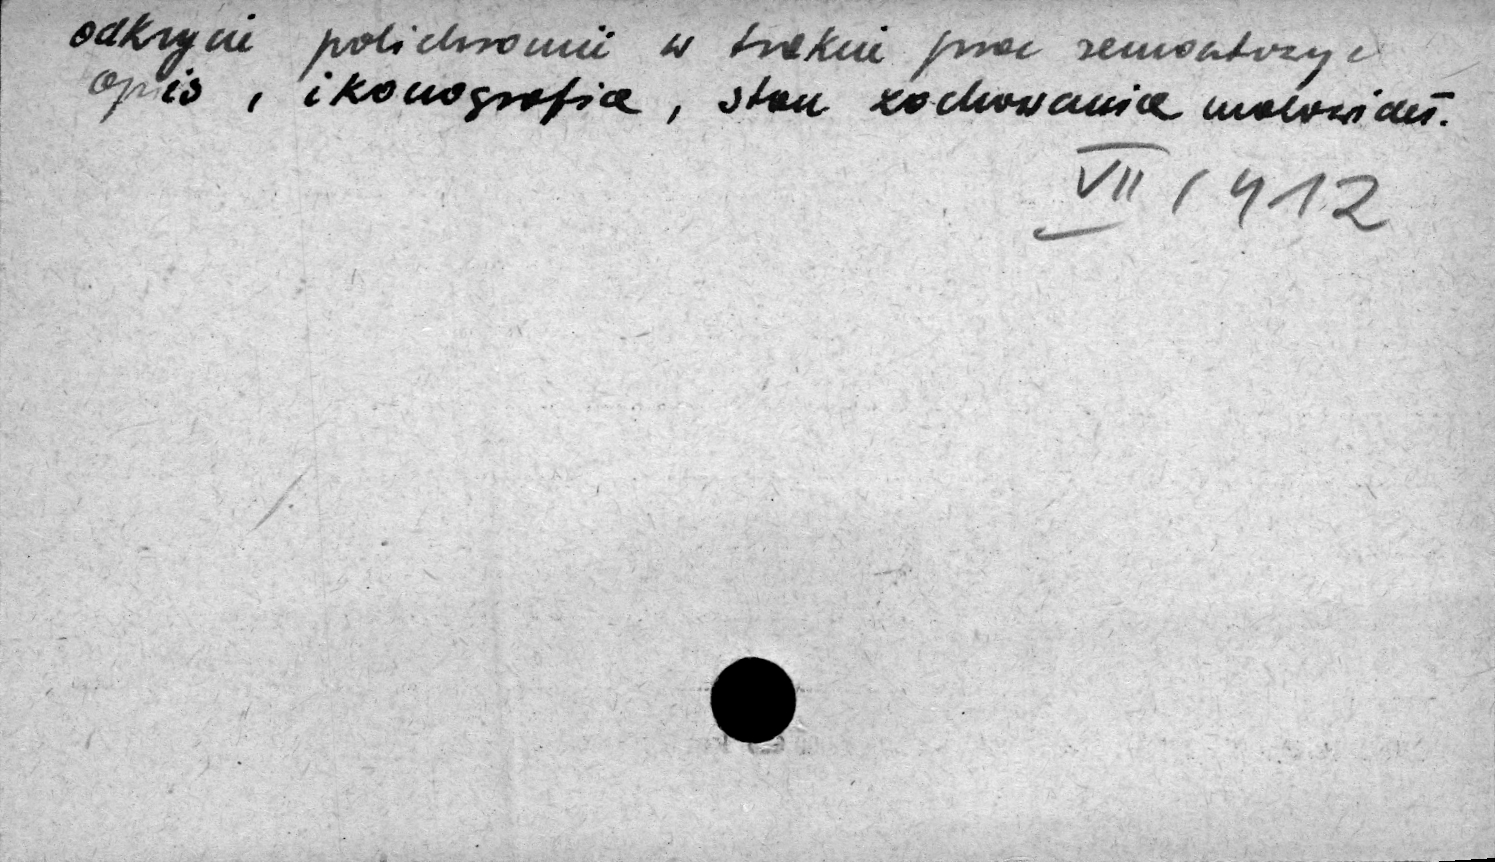 odkrycie polichromii w trakcie prac remontowych
opis, ikonografia, stan zachowania malowideł.
VII / 412